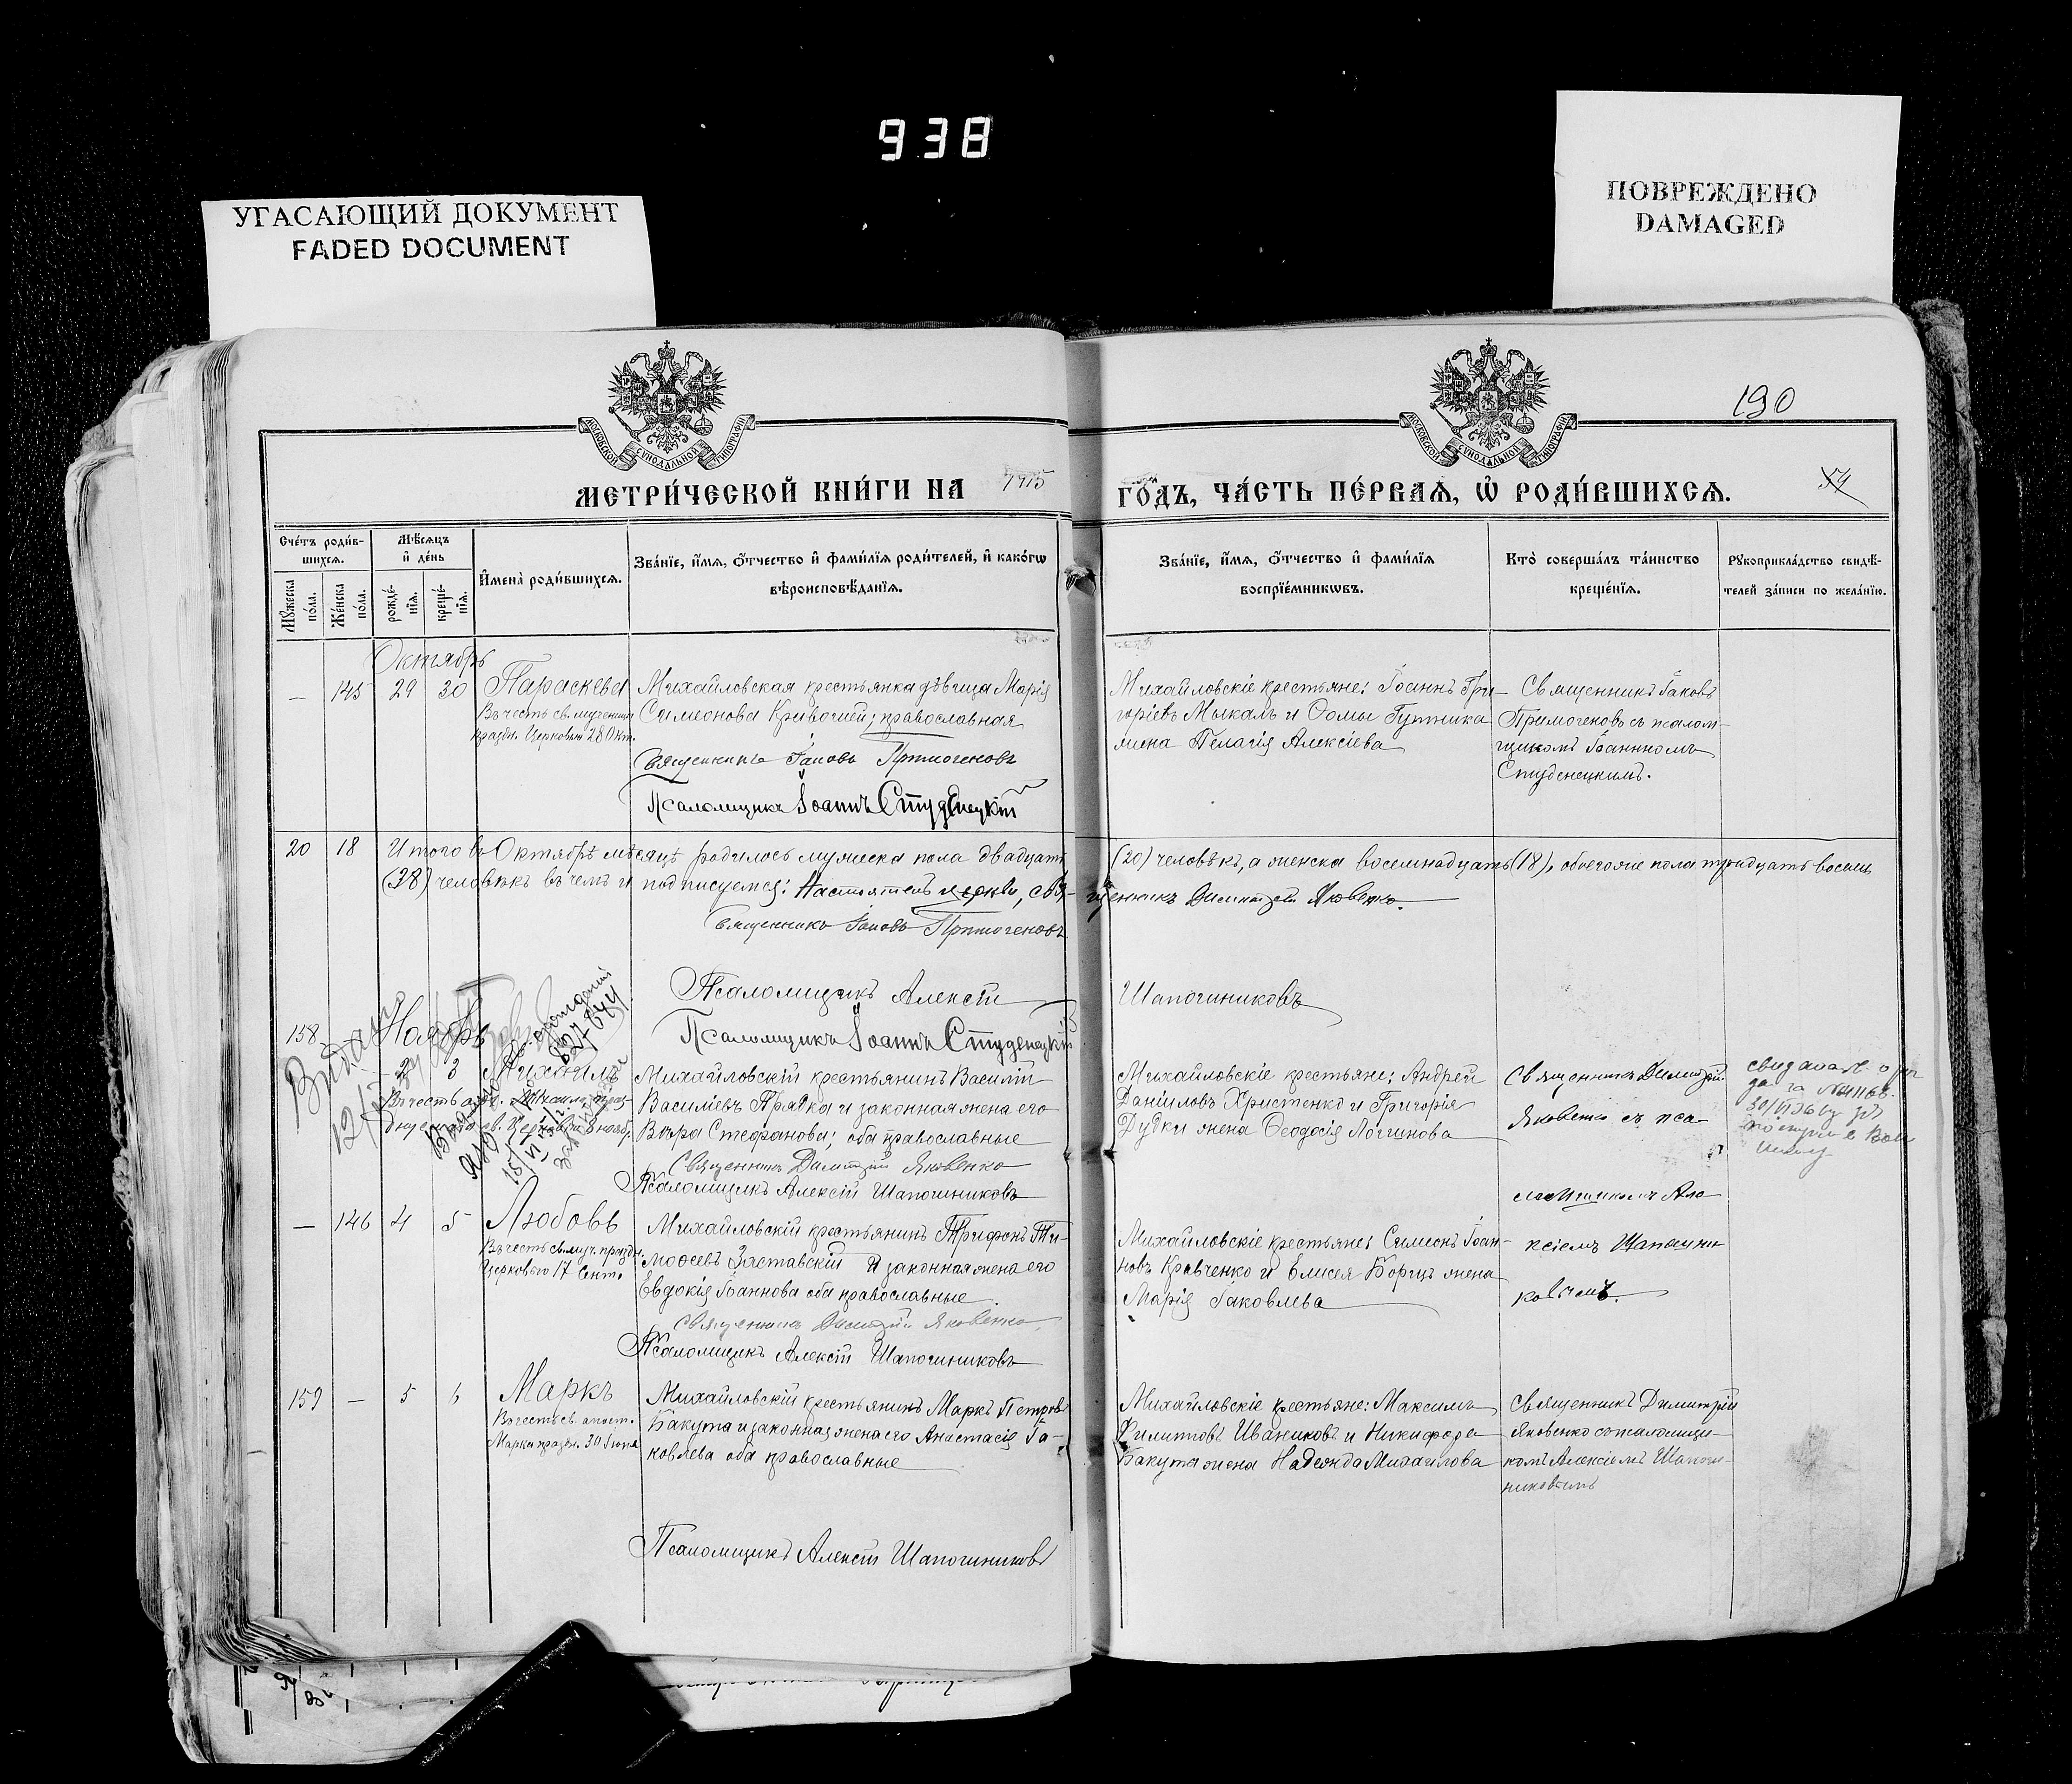 938
УГАСАЮЩИЙ ДОКУМЕНТ
FADED DOCUMENT
ПОВРЕЖДЕНО
DAMAGED
190
МОСКОВСКОЙ СѴНОДАЛЬНОЙ ТИПОГРАФІИ
МОСКОВСКОЙ СѴНОДАЛЬНОЙ ТИПОГРАФІИ
МЕТРИ́ЧЕСКОЙ КНИ́ГИ НА 1915 ГО́ДЪ, ЧА́СТЬ ПЕ́РВАѦ, Ѡ҆ РОДИ́ВШИХСѦ.
54
Сче́тъ роди́в-
шихсѧ.
Мꙋжеска по́ла.
Же́нска по́ла.
Мѣ́сѧцъ и҆ де́нь
рожде́-нїѧ.
креще́-нїѧ.
И҆мена̀ роди́вшихсѧ.
Зва́нїе, и҆́мѧ, ѻ҆́тчество и҆ фами́лїѧ роди́телей, и҆ како́гѡ
вѣроисповѣ́данїѧ.
Зва́нїе, и҆́мѧ, ѻ҆́тчество и҆ фами́лїѧ
воспрїе́мникѡвъ.
Кто̀ соверша́лъ та́инство
креще́нїѧ.
Рꙋкоприкла́дство свидѣ́-
телей за́писи по жела́нїю.
Октябрь
— 145 29 30 Параскева
Въ честь св. мученицы
праздн. Церковью 28 Окт.
Михайловская крестьянка дѣвица Марія
Симеонова Кривошей; православная
Священникъ Іаковъ Примогеновъ
Псаломщикъ Іоаннъ Студенецкій
Михайловскіе крестьяне: Іоаннъ Гри-
горіевъ Мыкалъ и Ѳомы Гутника
жена Пелагія Алексіева
Священникъ Іаковъ
Примогеновъ съ псалом-
щикомъ Іоанномъ
Студенецкимъ.
20 18 Итого въ Октябрѣ мѣсяцѣ родилось мужеска пола двадцать (20) человѣкъ, а женска восемнадцать (18), обоегоже пола тридцать восемь
(38) человѣкъ въ чемъ и подписуемся: Настоятель церкви, свя-щенникъ Димитрій Яковенко.
Священникъ Іаковъ Примогеновъ
Псаломщикъ Алексій Шапошниковъ
Псаломщикъ Іоаннъ Студенецкій
Ноябрь
158 — 2 3 Михаилъ
Михайловскій крестьянинъ Василій
Василіевъ Прядка и законная жена его
Вѣра Стефанова; оба православные
Священникъ Димитрій Яковенко
Псаломщикъ Алексій Шапошниковъ
Михайловскіе крестьяне: Андрей
Даніиловъ Христенко и Григорія
Дудки жена Ѳеодосія Логгинова
Священникъ Димитрій
Яковенко съ пса-
ломщикомъ Але-
ксіемъ Шапошни-
ковымъ.
827044
— 146 4 5 Любовь
Въ честь св. муч. праздн.
Церковью 17 Сент.
Михайловскій крестьянинъ Трифонъ Ти-
моѳеевъ Заставскій и законная жена его
Евдокія Іоаннова оба православные
Священникъ Димитрій Яковенко
Псаломщикъ Алексій Шапошниковъ
Михайловскіе крестьяне: Симеонъ Іоан-
новъ Кравченко и Елисея Борщъ жена
Марія Іаковлева
159 — 5 6 Маркъ
Въ честь св. апост.
Марка праздн.
Михайловскій крестьянинъ Маркъ Петровъ
Бакута и законная жена его Анастасія Іа-
ковлева оба православные
Михайловскіе крестьяне: Максимъ
Филипповъ Иваниковъ и Никифора
Бакута жена Надежда Михаилова
Священникъ Димитрій
Яковенко съ псаломщи-
комъ Алексіемъ Шапош-
никовымъ
Псаломщикъ Алексій Шапошниковъ